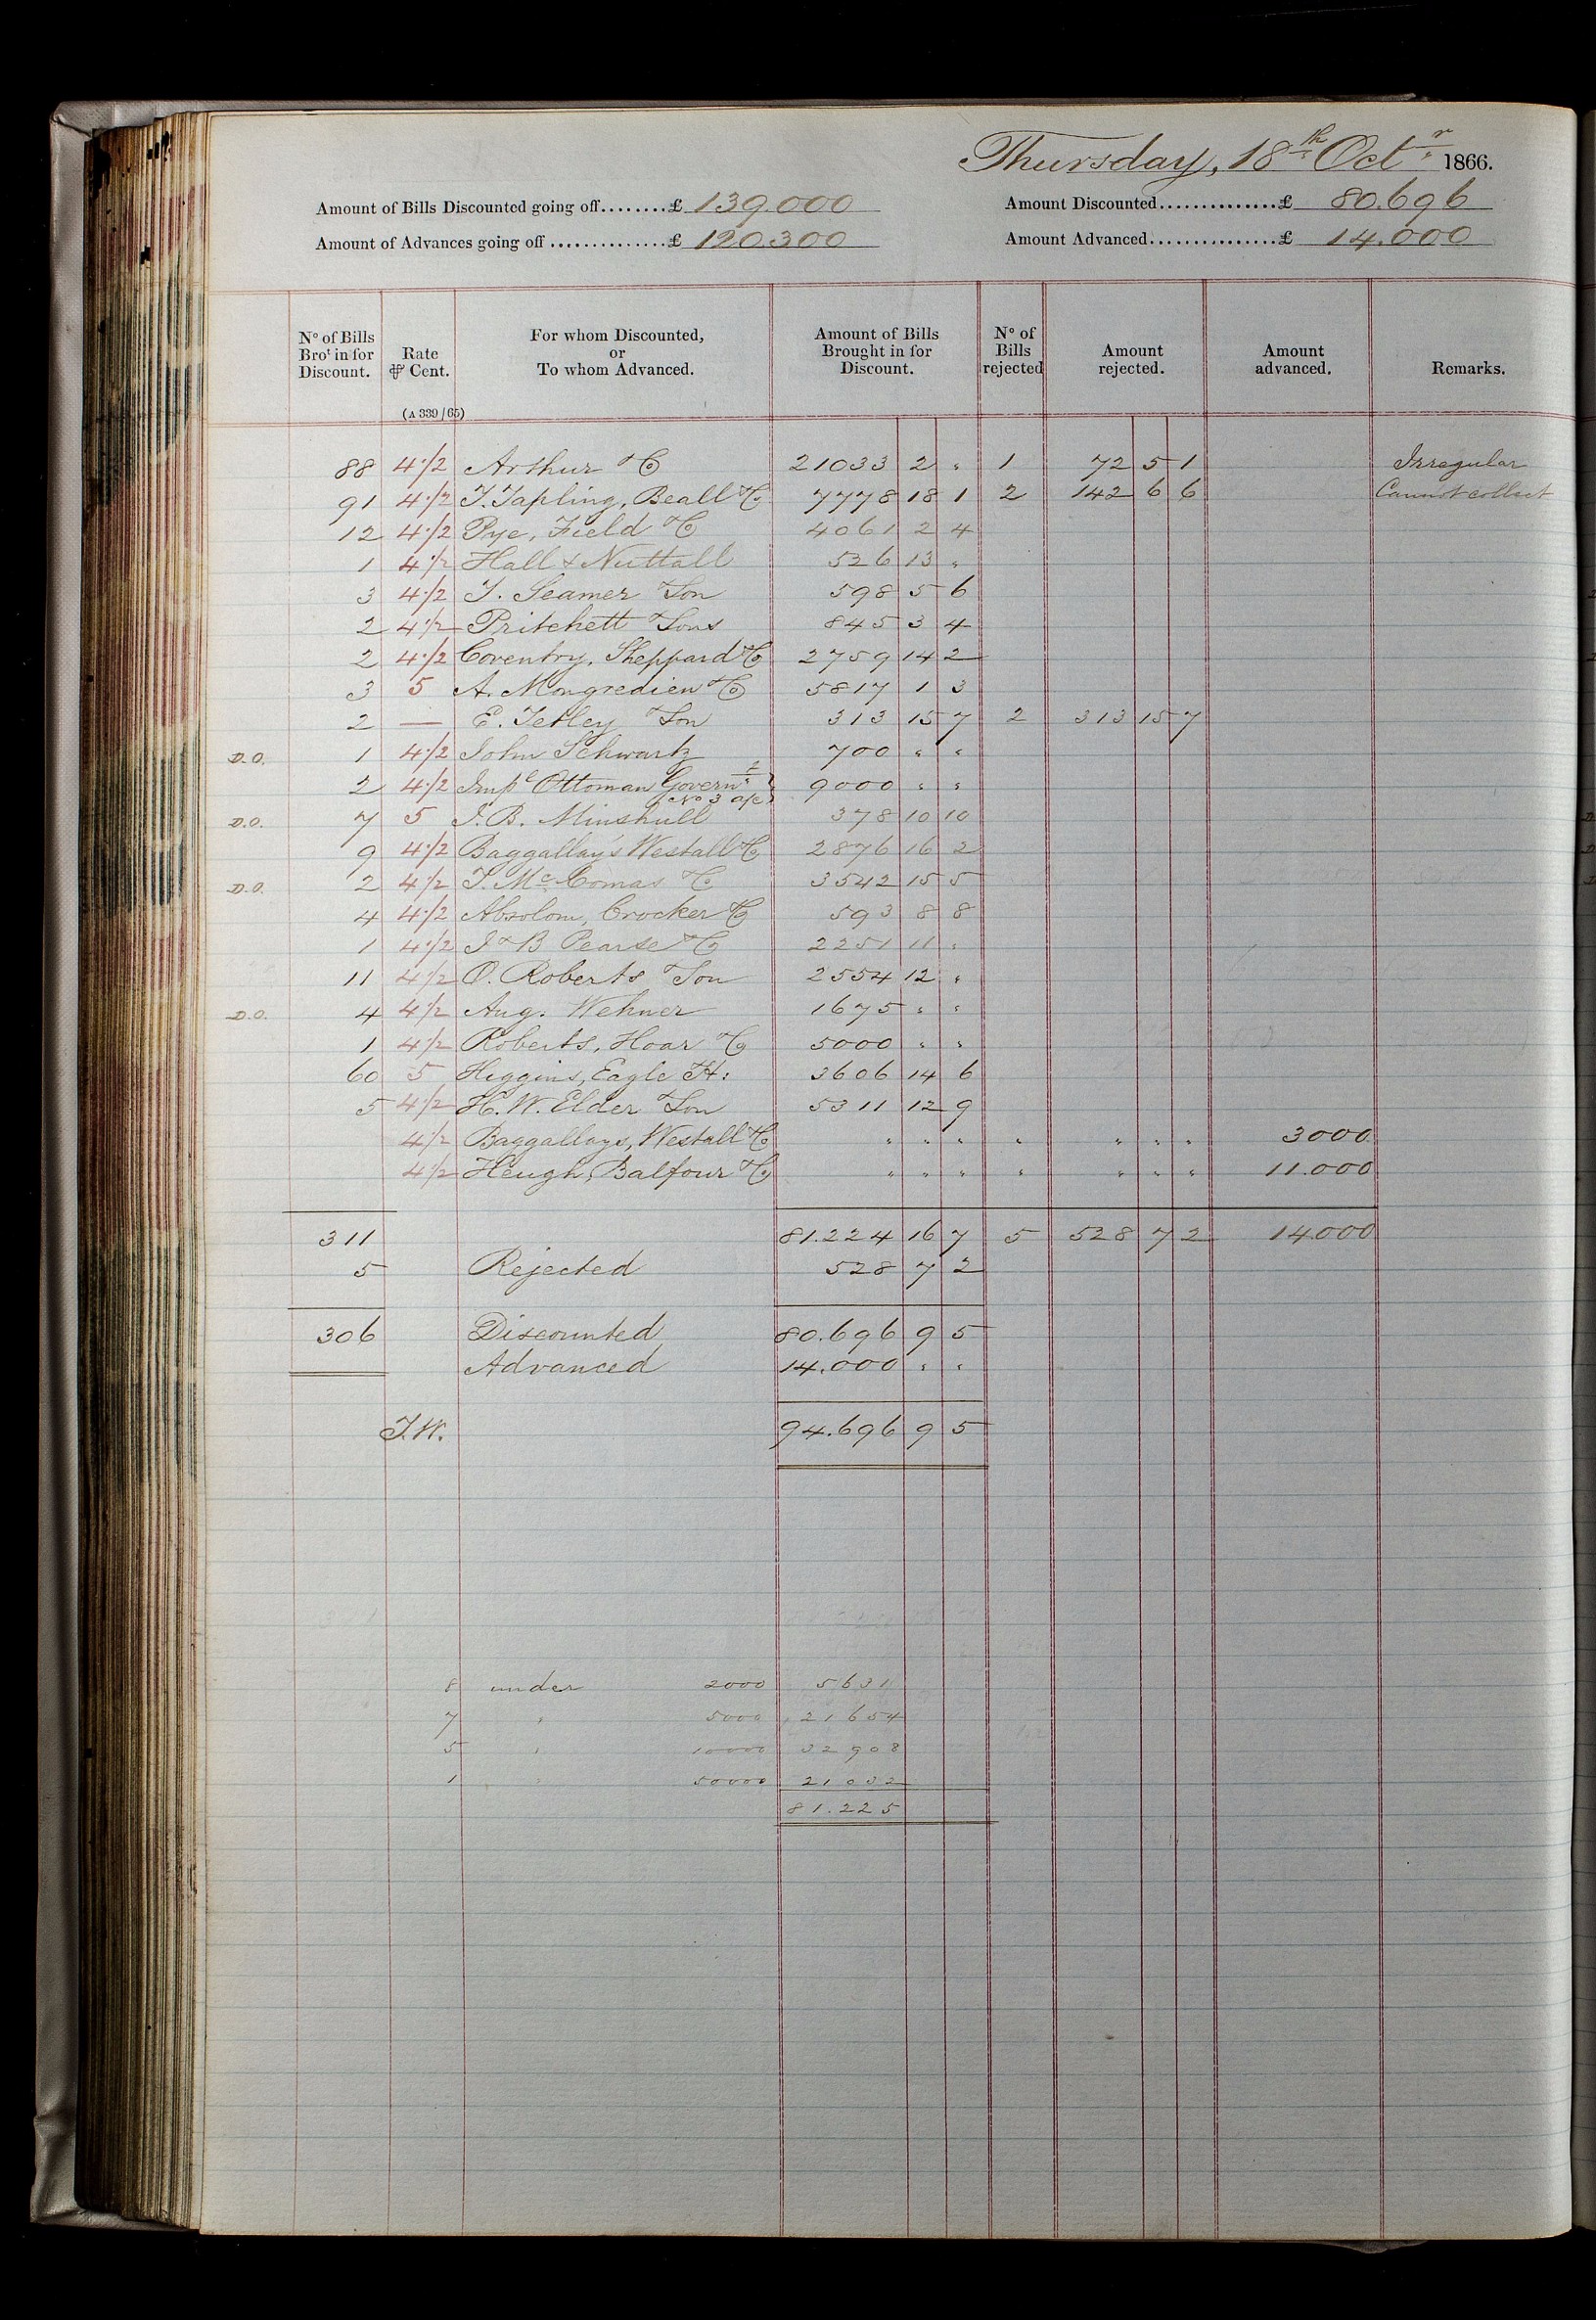 Thursday, 18th Octr 1866.
Amount of Bills Discounted going off........£ 139.000 Amount Discounted..............£ 80.696
Amount of Advances going off ..............£ 120.300 Amount Advanced...............£ 14.000
No of Bills Brot in for Discount. Rate ⅌ Cent. (A 339/65) For whom Discounted, or To whom Advanced. Amount of Bills Brought in for Discount. No of Bills rejected Amount rejected. Amount advanced. Remarks.
88 4½ Arthur & Co 21033 2 " 1 72 5 1 Irregular
91 4½ T. Tapling, Beall & Co 7778 18 1 2 142 6 6 Cannot collect
12 4½ Pye, Field & Co 4061 2 4
1 4½ Hall & Nuttall 526 13 "
3 4½ T. Seamer & Son 598 5 6
2 4½ Pritchett & Sons 845 3 4
2 4½ Coventry, Sheppard & Co 2759 14 2
3 5 A. Mongredien & Co 5817 1 3
2 — E. Tetley & Son 313 15 7 2 313 15 7
D.O. 1 4½ John Schwartz 700 " "
2 4½ Impl Ottoman Governt } 9000 " "
No 3 a/c
D.O. 7 5 J. B. Minshull 378 10 10
9 4½ Baggallay's Westall & Co 2876 16 2
D.O. 2 4½ T. McComas & Co 3542 15 5
4 4½ Absolom, Crocker & Co 593 8 8
1 4½ J & B Pearse & Co 2251 11 "
11 4½ O. Roberts & Son 2554 12 "
D.O. 4 4½ Aug. Wehner 1675 " "
1 4½ Roberts, Hoar & Co 5000 " "
60 5 Higgins, Eagle & H: 3606 14 6
5 4½ H. W. Elder & Son 5311 12 9
4½ Baggallays, Westall & Co " " " " " " " 3000
4½ Heugh, Balfour & Co " " " " " " " 11.000
311 81.224 16 7 5 528 7 2 14.000
5 Rejected 528 7 2
306 Discounted 80.696 9 5
Advanced 14.000 " "
T.W. 94.696 9 5
8 under 2000 5631
7 " 5000 21654
5 " 10000 32908
1 " 50000 21032
81.225